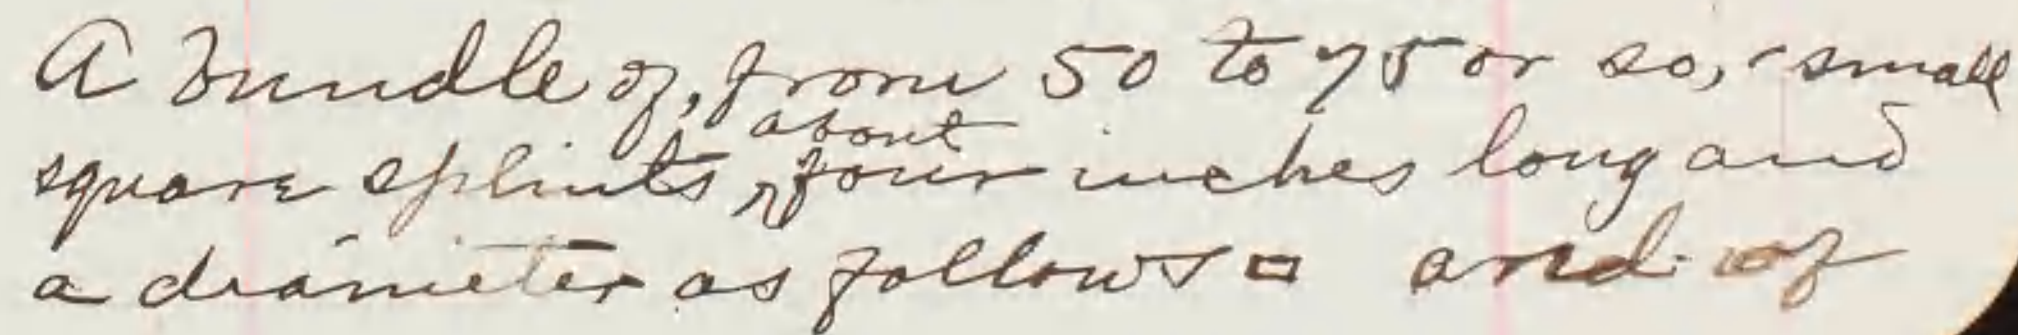 A bundle of, from 50 to 75 or so, small
square splints, about four inches long and
a diameter as follows □ and of